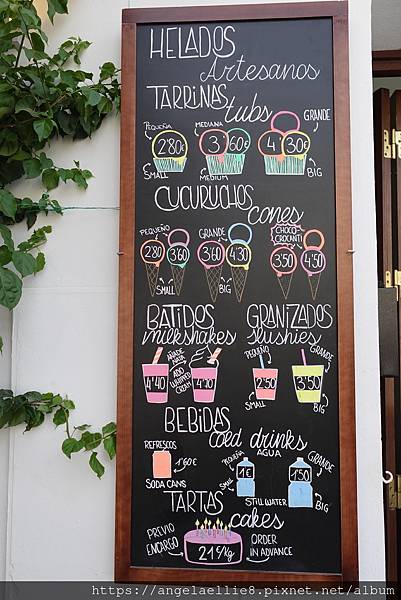 HELADOS
Artesanos
TARRINAS tubs
PEQUEÑA MEDIANA GRANDE
2'80€ 3'60€ 4'30€
SMALL MEDIUM BIG
CUCURUCHOS
cones
PEQUEÑO GRANDE CHOCO-CROCANTI
2'80 3'60 3'60 4'30 3'50 4'50
SMALL BIG
BATIDOS
milkshakes
AÑADE NATA
ADD WHIPPED CREAM
4'40
GRANIZADOS
slushies
PEQUEÑO GRANDE
2'50 3'50
SMALL BIG
BEBIDAS
cold drinks
REFRESCOS
1'60€
SODA CANS
AGUA
PEQUEÑA GRANDE
1€ 1'50
SMALL BIG
STILL WATER
TARTAS
cakes
PREVIO ENCARGO
21€/KG
ORDER IN ADVANCE
https://angelaellie8.pixnet.net/album